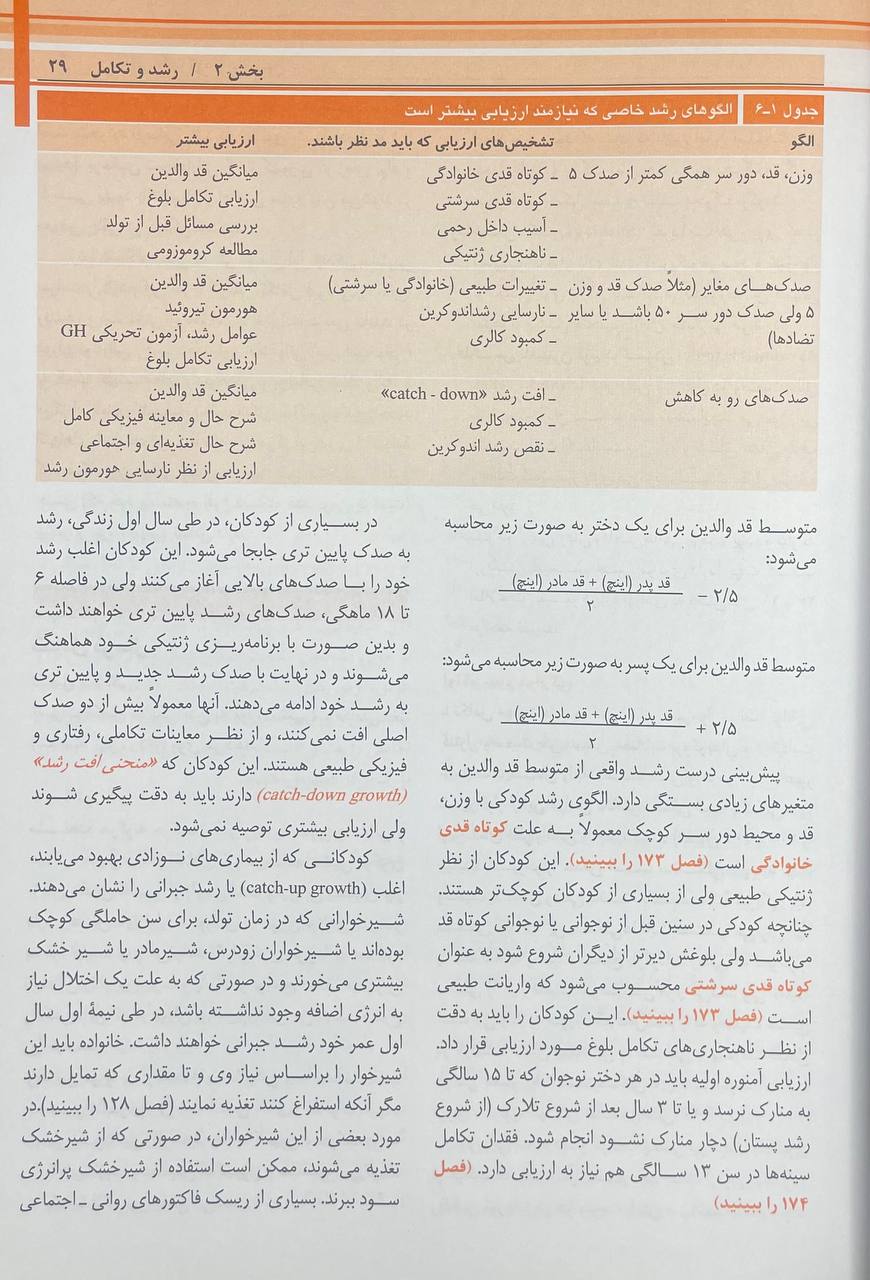 بخش ۲ / رشد و تکامل ۲۹
جدول ۱ـ۶ الگوهای رشد خاصی که نیازمند ارزیابی بیشتر است
الگو تشخیص‌های ارزیابی که باید مد نظر باشند. ارزیابی بیشتر
وزن، قد، دور سر همگی کمتر از صدک ۵ ـ کوتاه قدی خانوادگی میانگین قد والدین
ـ کوتاه قدی سرشتی ارزیابی تکامل بلوغ
ـ آسیب داخل رحمی بررسی مسائل قبل از تولد
ـ ناهنجاری ژنتیکی مطالعه کروموزومی
صدک‌های مغایر (مثلاً صدک قد و وزن ـ تغییرات طبیعی (خانوادگی یا سرشتی) میانگین قد والدین
۵ ولی صدک دور سر ۵۰ باشد یا سایر ـ نارسایی رشداندوکرین هورمون تیروئید
تضادها) ـ کمبود کالری عوامل رشد، آزمون تحریکی GH
ارزیابی تکامل بلوغ
صدک‌های رو به کاهش ـ افت رشد «catch - down» میانگین قد والدین
ـ کمبود کالری شرح حال و معاینه فیزیکی کامل
ـ نقص رشد اندوکرین شرح حال تغذیه‌ای و اجتماعی
ارزیابی از نظر نارسایی هورمون رشد
متوسط قد والدین برای یک دختر به صورت زیر محاسبه
می‌شود:
قد پدر (اینچ) + قد مادر (اینچ)
− ۲/۵
۲
متوسط قد والدین برای یک پسر به صورت زیر محاسبه می‌شود:
قد پدر (اینچ) + قد مادر (اینچ)
+ ۲/۵
۲
پیش‌بینی درست رشد واقعی از متوسط قد والدین به
متغیرهای زیادی بستگی دارد. الگوی رشد کودکی با وزن،
قد و محیط دور سر کوچک معمولاً به علت کوتاه قدی
خانوادگی است (فصل ۱۷۳ را ببینید). این کودکان از نظر
ژنتیکی طبیعی ولی از بسیاری از کودکان کوچک‌تر هستند.
چنانچه کودکی در سنین قبل از نوجوانی یا نوجوانی کوتاه قد
می‌باشد ولی بلوغش دیرتر از دیگران شروع شود به عنوان
کوتاه قدی سرشتی محسوب می‌شود که واریانت طبیعی
است (فصل ۱۷۳ را ببینید). این کودکان را باید به دقت
از نظر ناهنجاری‌های تکامل بلوغ مورد ارزیابی قرار داد.
ارزیابی آمنوره اولیه باید در هر دختر نوجوان که تا ۱۵ سالگی
به منارک نرسد و یا تا ۳ سال بعد از شروع تلارک (از شروع
رشد پستان) دچار منارک نشود انجام شود. فقدان تکامل
سینه‌ها در سن ۱۳ سالگی هم نیاز به ارزیابی دارد. (فصل
۱۷۴ را ببینید)
در بسیاری از کودکان، در طی سال اول زندگی، رشد
به صدک پایین تری جابجا می‌شود. این کودکان اغلب رشد
خود را با صدک‌های بالایی آغاز می‌کنند ولی در فاصله ۶
تا ۱۸ ماهگی، صدک‌های رشد پایین تری خواهند داشت
و بدین صورت با برنامه‌ریزی ژنتیکی خود هماهنگ
می‌شوند و در نهایت با صدک رشد جدید و پایین تری
به رشد خود ادامه می‌دهند. آنها معمولاً بیش از دو صدک
اصلی افت نمی‌کنند، و از نظر معاینات تکاملی، رفتاری و
فیزیکی طبیعی هستند. این کودکان که «منحنی افت رشد»
(catch-down growth) دارند باید به دقت پیگیری شوند
ولی ارزیابی بیشتری توصیه نمی‌شود.
کودکانی که از بیماری‌های نوزادی بهبود می‌یابند،
اغلب (catch-up growth) یا رشد جبرانی را نشان می‌دهند.
شیرخوارانی که در زمان تولد، برای سن حاملگی کوچک
بوده‌اند یا شیرخواران زودرس، شیرمادر یا شیر خشک
بیشتری می‌خورند و در صورتی که به علت یک اختلال نیاز
به انرژی اضافه وجود نداشته باشد، در طی نیمهٔ اول سال
اول عمر خود رشد جبرانی خواهند داشت. خانواده باید این
شیرخوار را براساس نیاز وی و تا مقداری که تمایل دارند
مگر آنکه استفراغ کنند تغذیه نمایند (فصل ۱۲۸ را ببینید).در
مورد بعضی از این شیرخواران، در صورتی که از شیرخشک
تغذیه می‌شوند، ممکن است استفاده از شیرخشک پرانرژی
سود ببرند. بسیاری از ریسک فاکتورهای روانی ـ اجتماعی